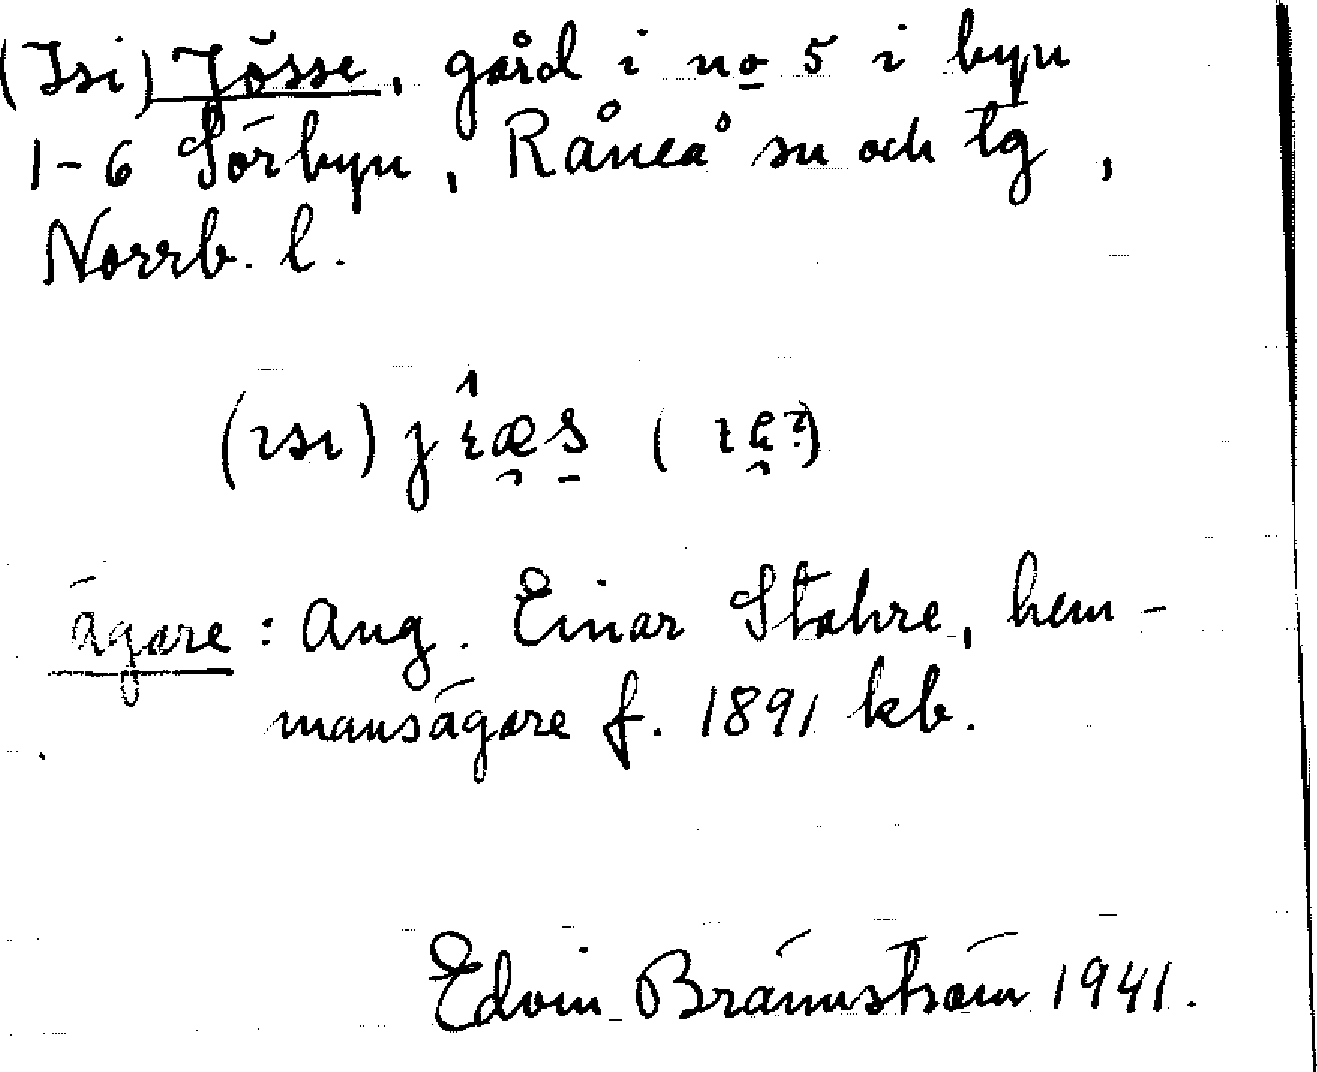 (Isi) Jösse, gård i no 5 i byn
1-6 Sörbyn, Råneå sn och tg,
Norrb. l.
(ısı)
ägare: Aug. Einar Stahre, hem-
mansägare f. 1891 kb.
Edvin Brännström 1941.